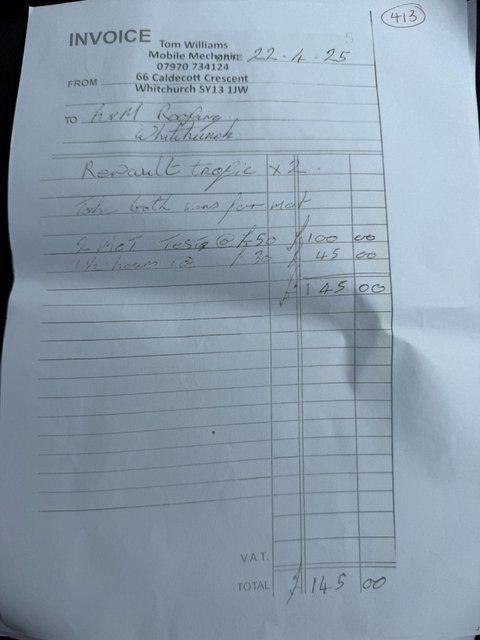 413
5
INVOICE
Tom Williams
Mobile Mechanic
DATE 22.4.25
07970 734124
FROM 66 Caldecott Crescent
Whitchurch SY13 1JW
TO Roofing
Whitchurch
Renault trafic x 2.
both vans for mot
2 MOT Tests @ £50 £ 100 00
1½ hours @ £30 £ 45 00
£ 145 00
V.A.T.
TOTAL £ 145 00